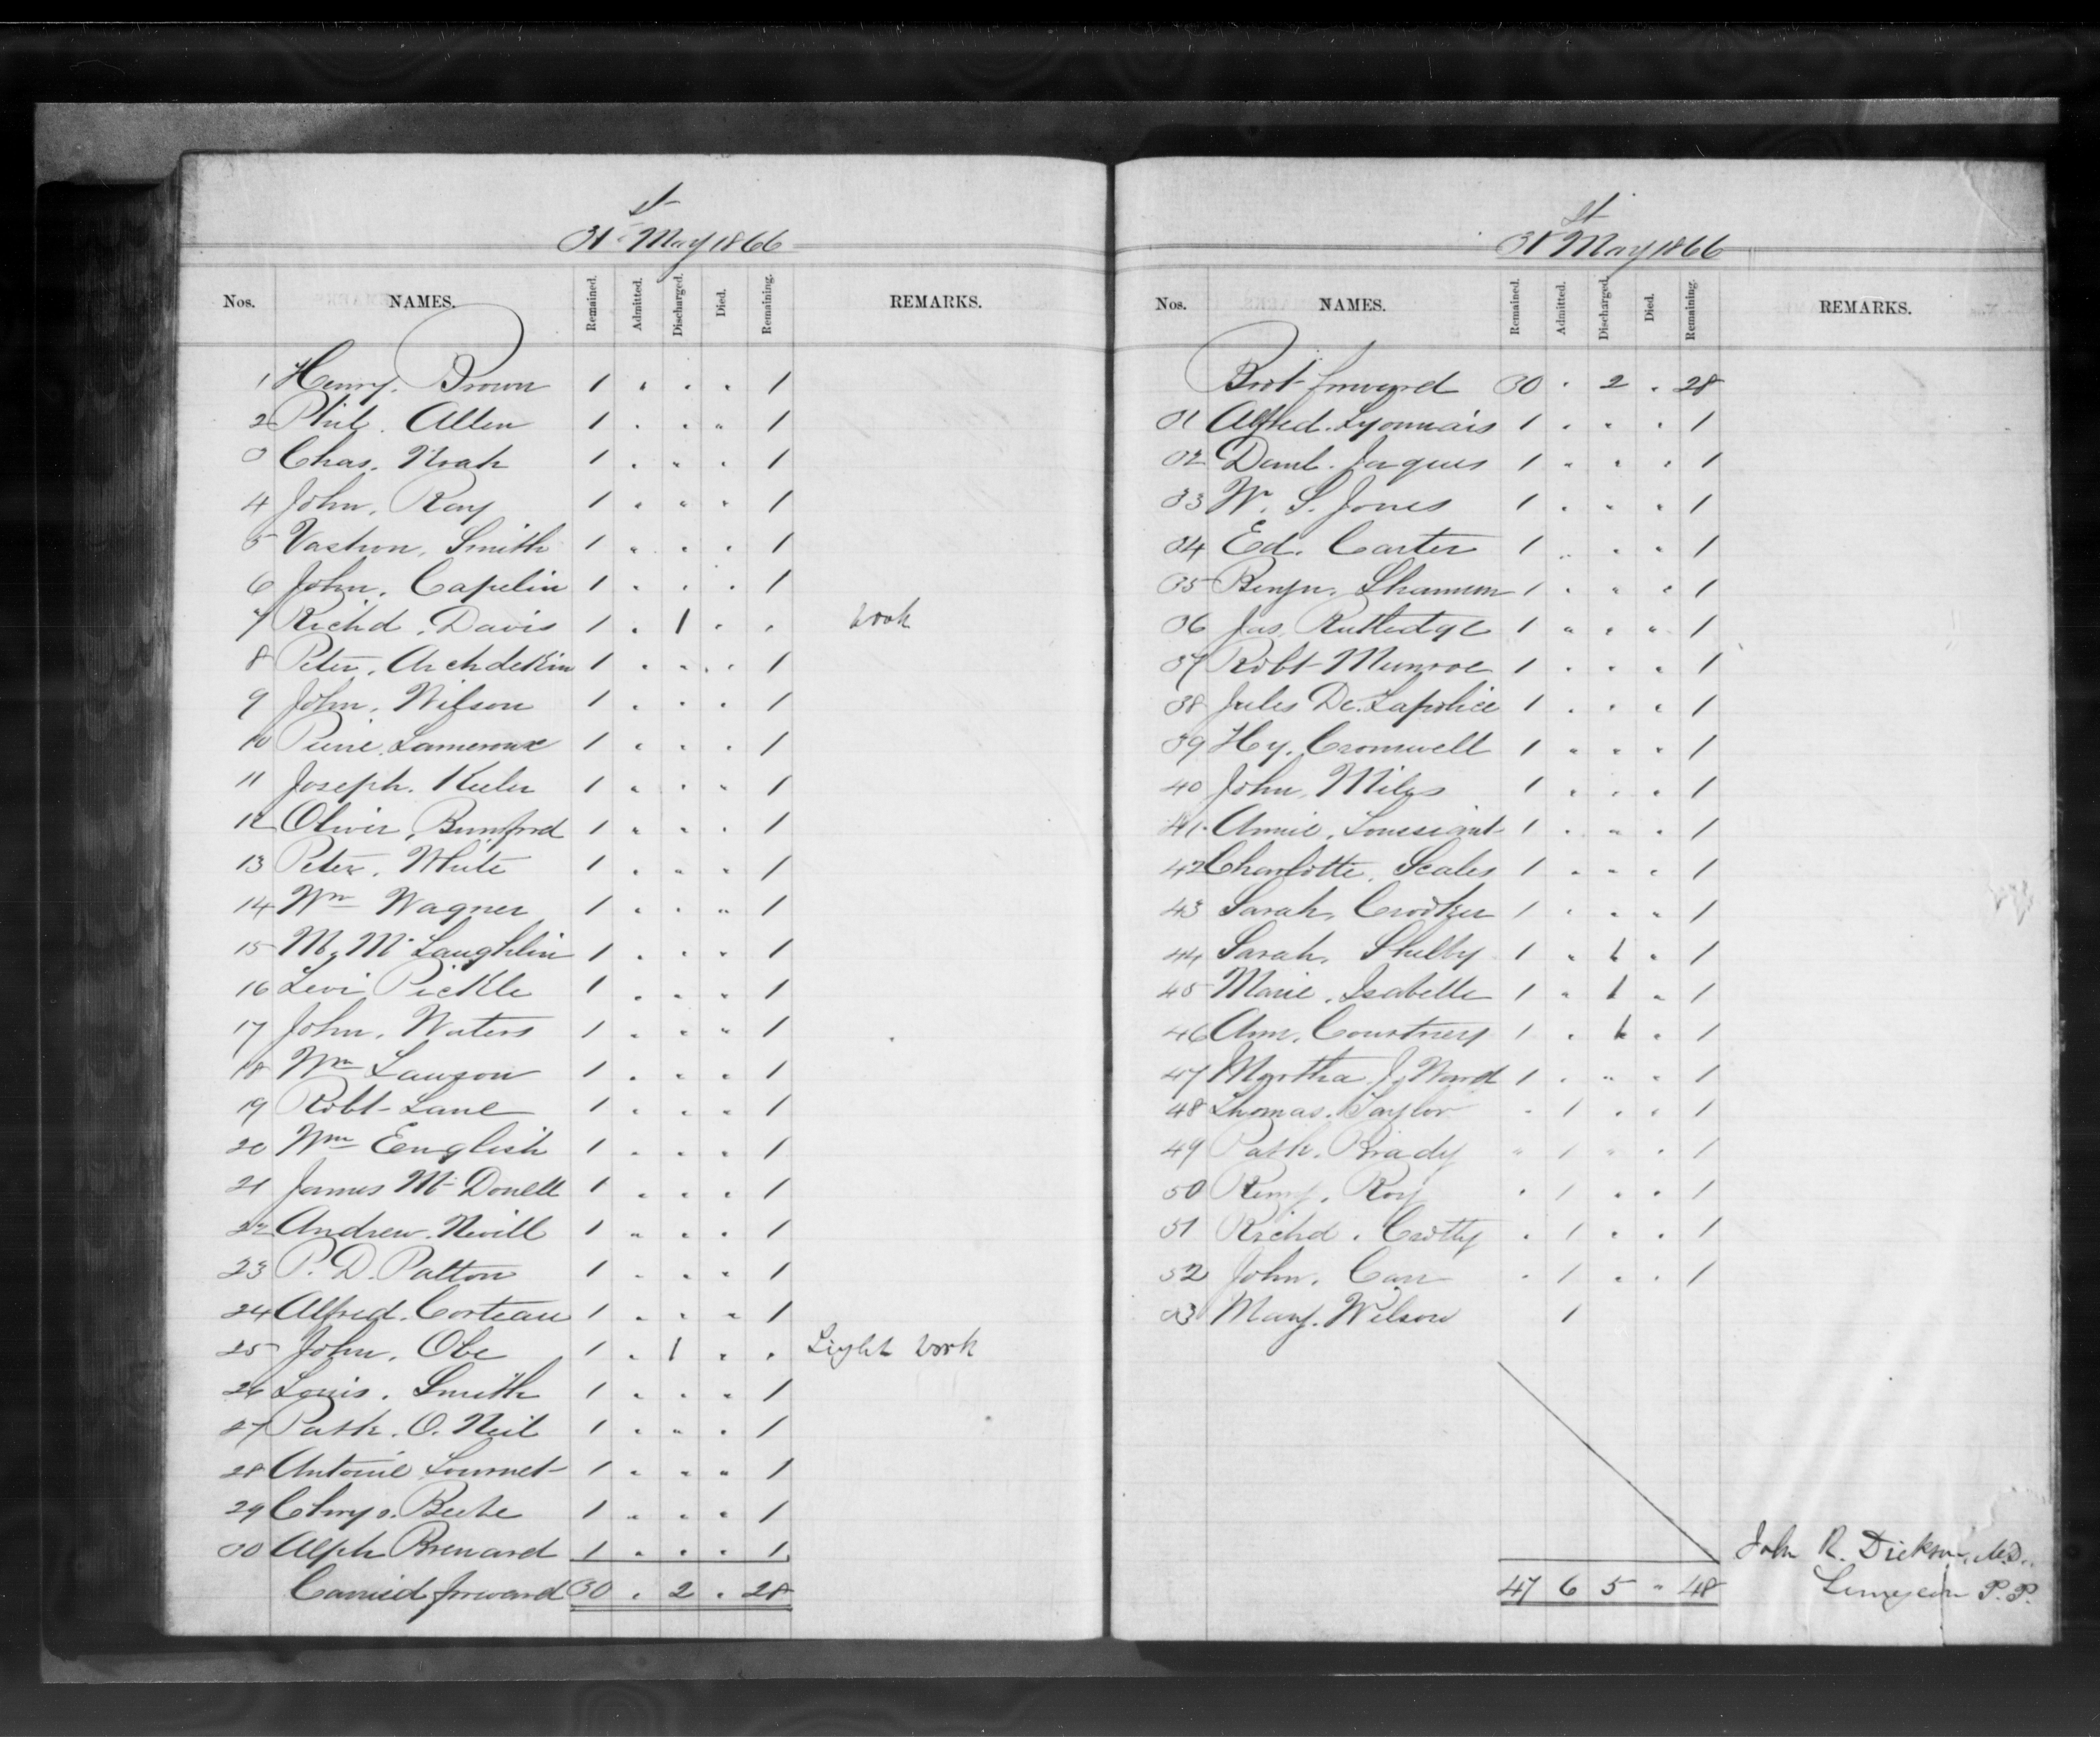 31st May 1866
Nos. NAMES. Remained. Admitted. Discharged. Died. Remaining. REMARKS.
1 Henry. Brown 1 " " " 1
2 Phil. Allen 1 " " " 1
3 Chas. Noah 1 " " " 1
4 John. Ray 1 " " " 1
5 Vastron. Smith 1 " " " 1
6 John. Capelin 1 " " " 1
7 Richd. Davis 1 " 1 " " Work
8 Peter. Archdekin 1 " " " 1
9 John. Wilson 1 " " " 1
10 Pierre. Lameroux 1 " " " 1
11 Joseph. Keeler 1 " " " 1
12 Oliver. Bumford 1 " " " 1
13 Peter. White 1 " " " 1
14 Wm Wagner 1 " " " 1
15 M. McLaughlin 1 " " " 1
16 Levi Pickle 1 " " " 1
17 John. Waters 1 " " " 1
18 Wm Lawson 1 " " " 1
19 Robt Lane 1 " " " 1
20 Wm Eenglish 1 " " " 1
21 James McDonell 1 " " " 1
22 Andrew. Nevill 1 " " " 1
23 P. D. Patton 1 " " " 1
24 Alfred. Corteau 1 " " " 1
25 John. Obe 1 " 1 " " Light Work
26 Louis. Smith 1 " " " 1
27 Patk. O. Neil 1 " " " 1
28 Antoine Lournet 1 " " " 1
29 Chrys. Beebe 1 " " " 1
30 Alph Brenard 1 " " " 1
Carried forward 30 " 2 " 28
31st May 1866
Nos. NAMES. Remained. Admitted. Discharged. Died. Remaining. REMARKS.
Brot forward 30 " 2 " 28
31 Alfred. Lyonnais 1 " " " 1
32 Danl. Jaques 1 " " " 1
33 W. S. Jones 1 " " " 1
34 Ed. Carter 1 " " " 1
35 Benjn. Shannon 1 " " " 1
36 Jas. Rutledge 1 " " " 1
37 Robt Munroe 1 " " " 1
38 Jules De. Lapolice 1 " " " 1
39 Hy. Cromwell 1 " " " 1
40 John. Miles 1 " " " 1
41 Annie. 1 " " " 1
42 Charlotte. Scales 1 " " " 1
43 Sarah. Crooker 1 " " " 1
44 Sarah. Shelby 1 " 1 " 1
45 Marie. Isabelle 1 " 1 " 1
46 Ann. Courtney 1 " 1 " 1
47 Martha. J. Ward 1 " " " 1
48 Thomas. Taylor " 1 " " 1
49 Patk. Brady " 1 " " 1
50 Remy. Roy " 1 " " 1
51 Richd. Crotty " 1 " " 1
52 John. Carr " 1 " " 1
53 Mary. Wilson 1
47 6 5 " 48
John R. Dickson, M.D.
Surgeon P.P.